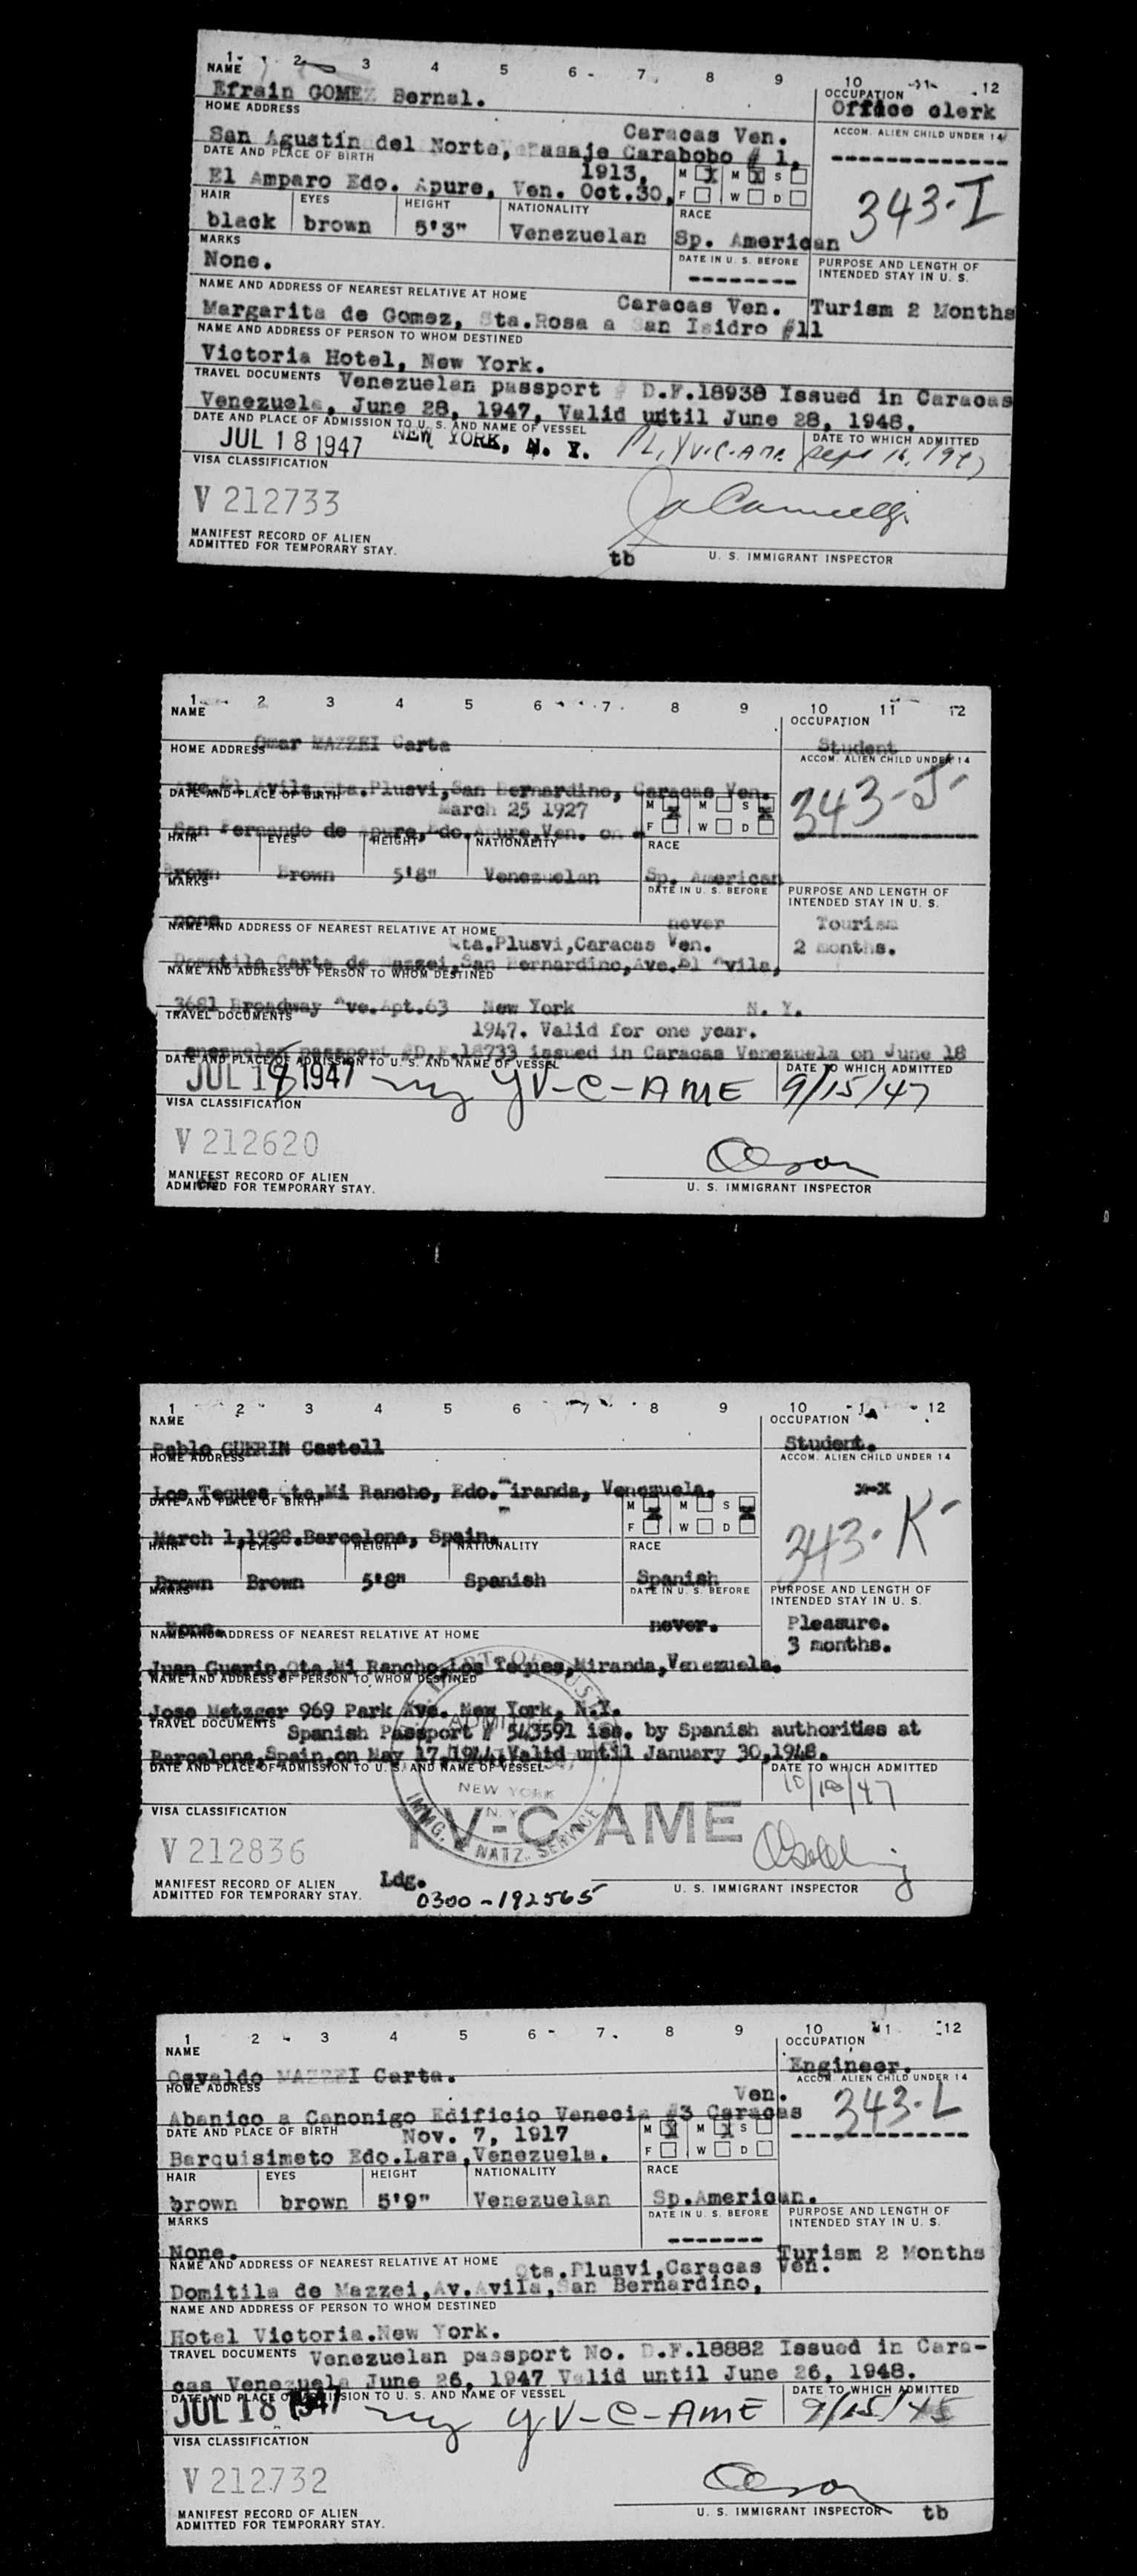 1 2 3 4 5 6 7 8 9 10 11 12
NAME OCCUPATION
Efrain GOMEZ Bernal. Office clerk
HOME ADDRESS ACCOM. ALIEN CHILD UNDER 14
Caracas Ven.
San Agustin del Norte, Pasaje Carabobo # 1,
DATE AND PLACE OF BIRTH 1913, M X M X S
El Amparo Edo. Apure, Ven. Oct.30, F W D
343-I
HAIR EYES HEIGHT NATIONALITY RACE
black brown 5'3" Venezuelan Sp. American
MARKS DATE IN U. S. BEFORE PURPOSE AND LENGTH OF
INTENDED STAY IN U. S.
None. --------
NAME AND ADDRESS OF NEAREST RELATIVE AT HOME Caracas Ven. Turism 2 Months
Margarita de Gomez, Sta.Rosa a San Isidro #11
NAME AND ADDRESS OF PERSON TO WHOM DESTINED
Victoria Hotel, New York.
TRAVEL DOCUMENTS Venezuelan passport # D.F.18938 Issued in Caracas
Venezuela, June 28, 1947, Valid until June 28, 1948.
DATE AND PLACE OF ADMISSION TO U. S. AND NAME OF VESSEL DATE TO WHICH ADMITTED
JUL 18 1947 NEW YORK, N. Y. YV-C-AME Sept 16, 1947
VISA CLASSIFICATION
V 212733
MANIFEST RECORD OF ALIEN
ADMITTED FOR TEMPORARY STAY.
tb U. S. IMMIGRANT INSPECTOR
1 2 3 4 5 6 7 8 9 10 11 12
NAME OCCUPATION
Omar MAZZEI Carta Student
HOME ADDRESS ACCOM. ALIEN CHILD UNDER 14
Ave.El Avila Qta.Plusvi,San Bernardino, Caracas Ven.
343-J
DATE AND PLACE OF BIRTH March 25 1927 M X M S X
San Fernando de Apure,Edo.Apure,Ven. on F W D
HAIR EYES HEIGHT NATIONALITY RACE
Brown Brown 5'8" Venezuelan Sp. American
MARKS DATE IN U. S. BEFORE PURPOSE AND LENGTH OF
INTENDED STAY IN U. S.
none never Tourism
NAME AND ADDRESS OF NEAREST RELATIVE AT HOME
Qta.Plusvi,Caracas Ven. 2 months.
Domotila Carta de Mazzei,San Bernardino,Ave.El Avila,
NAME AND ADDRESS OF PERSON TO WHOM DESTINED
3681 Broadway Ave.Apt.63 New York N. Y.
TRAVEL DOCUMENTS 1947. Valid for one year.
Venezuelan passport #D.F.18733 issued in Caracas Venezuela on June 18
DATE AND PLACE OF ADMISSION TO U. S. AND NAME OF VESSEL DATE TO WHICH ADMITTED
JUL 18 1947 ny YV-C-AME 9/15/47
VISA CLASSIFICATION
V 212620
Olson
MANIFEST RECORD OF ALIEN
ADMITTED FOR TEMPORARY STAY. U. S. IMMIGRANT INSPECTOR
1 2 3 4 5 6 7 8 9 10 11 12
NAME OCCUPATION
Pablo GUERIN Castell Student.
HOME ADDRESS ACCOM. ALIEN CHILD UNDER 14
Los Teques Qta.Mi Rancho, Edo.Miranda, Venezuela. x-x
DATE AND PLACE OF BIRTH M X M S X
March 1,1928.Barcelona, Spain. F W D
343-K
HAIR EYES HEIGHT NATIONALITY RACE
Brown Brown 5'8" Spanish Spanish
MARKS DATE IN U. S. BEFORE PURPOSE AND LENGTH OF
INTENDED STAY IN U. S.
None. never. Pleasure.
NAME AND ADDRESS OF NEAREST RELATIVE AT HOME 3 months.
Juan Guerin,Qta.Mi Rancho,Los Teques,Miranda,Venezuela.
NAME AND ADDRESS OF PERSON TO WHOM DESTINED
Jose Metzger 969 Park Ave. New York, N.Y.
TRAVEL DOCUMENTS Spanish Passport # 543591 iss. by Spanish authorities at
Barcelona,Spain,on May 17,1944,Valid until January 30,1948.
DATE AND PLACE OF ADMISSION TO U. S. AND NAME OF VESSEL DATE TO WHICH ADMITTED
10/18/47
NEW YORK
N. Y.
IMMG. & NATZ. SERVICE
YV-C-AME
VISA CLASSIFICATION
V 212836
MANIFEST RECORD OF ALIEN
ADMITTED FOR TEMPORARY STAY. Ldg. U. S. IMMIGRANT INSPECTOR
0300-192565
1 2 3 4 5 6 7 8 9 10 11 12
NAME OCCUPATION
Osvaldo MAZZEI Carta. Engineer.
HOME ADDRESS ACCOM. ALIEN CHILD UNDER 14
Ven.
Abanico a Canonigo Edificio Venecia #3 Caracas
343-L
DATE AND PLACE OF BIRTH Nov. 7, 1917 M X M X S
Barquisimeto Edo.Lara,Venezuela. F W D
HAIR EYES HEIGHT NATIONALITY RACE
brown brown 5'9" Venezuelan Sp.American.
MARKS DATE IN U. S. BEFORE PURPOSE AND LENGTH OF
INTENDED STAY IN U. S.
None. ------- Turism 2 Months
NAME AND ADDRESS OF NEAREST RELATIVE AT HOME Qta.Plusvi,Caracas Ven.
Domitila de Mazzei,Av.Avila,San Bernardino,
NAME AND ADDRESS OF PERSON TO WHOM DESTINED
Hotel Victoria.New York.
TRAVEL DOCUMENTS Venezuelan passport No. D.F.18882 Issued in Cara-
cas Venezuela June 26, 1947 Valid until June 26, 1948.
DATE AND PLACE OF ADMISSION TO U. S. AND NAME OF VESSEL DATE TO WHICH ADMITTED
JUL 18 1947 ny YV-C-AME 9/15/45
VISA CLASSIFICATION
V 212732
Olson
MANIFEST RECORD OF ALIEN
ADMITTED FOR TEMPORARY STAY. U. S. IMMIGRANT INSPECTOR tb